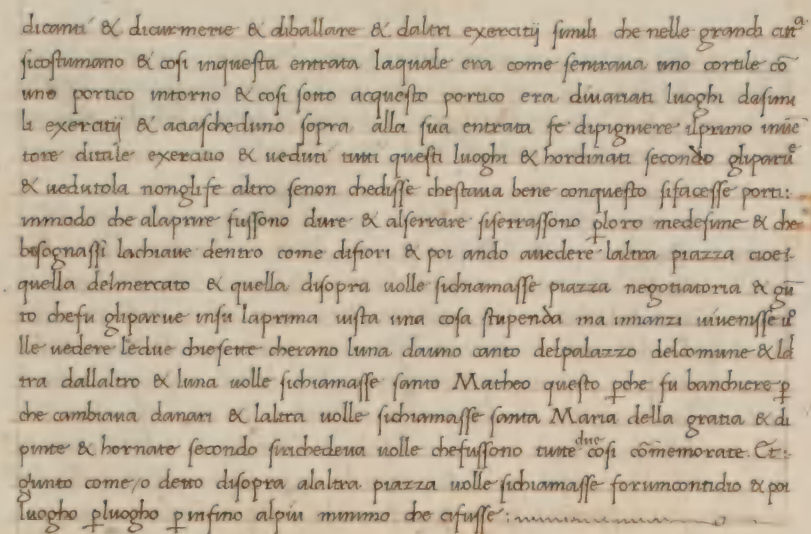 dicanti & dicurmerie & diballare & daltri exercitij simili che nelle grandi citt^a
sicostumano & cosi inquesta entrata laquale era come sentraua uno cortile cō
uno portico intorno & cosi sotto acquesto portico era diuariati luoghi dasimi
li exercitij & aciascheduno sopra alla sua entrata fe dipigniere ilprimo inuē
tore ditale exercitio & ueduti tutti questi luoghi & hordinati secondo gliparu^e
& uedutola nonglife altro senon chedisse chestaua bene conquesto sifacesse porti:
inmodo che alaprire fussono dure & alserrare siserrassono ꝑloro medesime & che
bisognassi lachiaue dentro come difiori & poi ando auedere laltra piazza cioe:
quella delmercato & quella disopra uolle sichiamasse piazza negotiatoria & giū
to chefu gliparue insu laprima uista una cosa stupenda ma innanzi uiuenisse uo
lle uedere ledue chiesette cherano luna dauno canto delpalazzo delcomune & lal
tra dallaltro & luna uolle sichiamasse santo Matheo questo ꝑche fu banchiere ꝑ
che cambiaua danari & laltra uolle sichiamasse santa Maria della gratia & di
pinte & hornate secondo sirichedeua uolle chefussono tutte due cosi cōmemorate. Et:
giunto come/o detto disopra alaltra piazza uolle sichiamasse forumcontidio & poi
luogho ꝑluogho ꝑinfino alpiu minimo che cifusse: